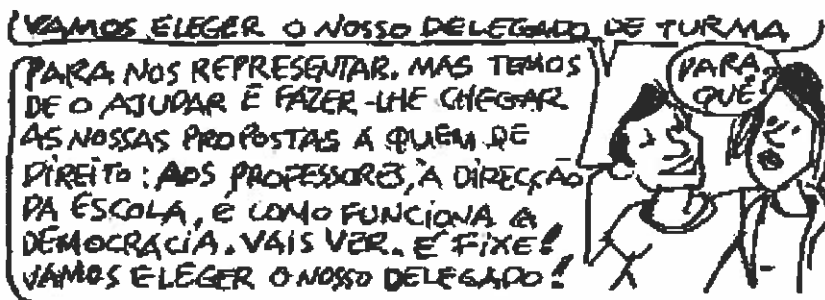 VAMOS ELEGER O NOSSO DELEGADO DE TURMA
PARA QUÊ?
PARA NOS REPRESENTAR. MAS TEMOS
DE O AJUDAR E FAZER-LHE CHEGAR
AS NOSSAS PROPOSTAS A QUEM DE
DIREITO: AOS PROFESSORES, À DIRECÇÃO
DA ESCOLA, É COMO FUNCIONA A
DEMOCRACIA. VAIS VER. É FIXE!
VAMOS ELEGER O NOSSO DELEGADO!